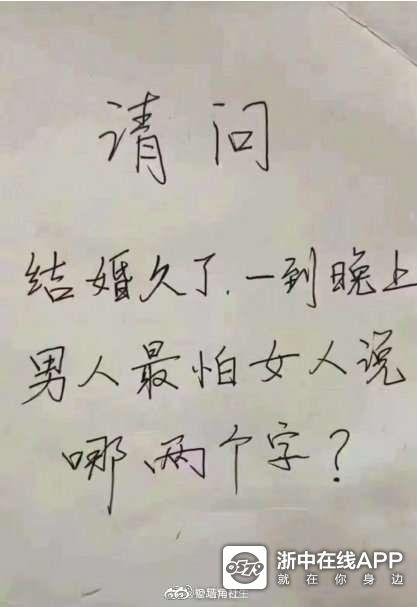 请问
结婚久了.一到晚上
男人最怕女人说
哪两个字?
0579
浙中在线APP
就在你身边